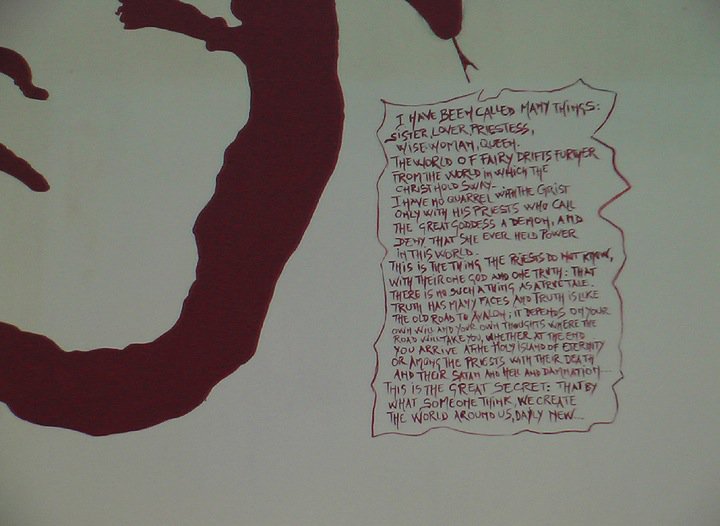 I HAVE BEEN CALLED MANY THINGS:
SISTER, LOVER, PRIESTESS,
WISE-WOMAN, QUEEN.
THE WORLD OF FAIRY DRIFTS FURTHER
FROM THE WORLD IN WHICH THE
CHRIST HOLD SWAY-
I HAVE NO QUARREL WITH THE CHRIST
ONLY WITH HIS PRIESTS WHO CALL
THE GREAT GODDESS A DEMON, AND
DENY THAT SHE EVER HELD POWER
IN THIS WORLD.
THIS IS THE THING THE PRIESTS DO NOT KNOW,
WITH THEIR ONE GOD AND ONE TRUTH: THAT
THERE IS NO SUCH A THING AS A TRUE TALE.
TRUTH HAS MANY FACES AND TRUTH IS LIKE
THE OLD ROAD TO AVALON; IT DEPENDS ON YOUR
OWN WILL AND YOUR OWN THOUGHTS WHERE THE
ROAD WILL TAKE YOU, WHETHER AT THE END
YOU ARRIVE AT HE HOLY ISLAND OF ETERNITY
OR AMONG THE PRIESTS WITH THEIR DEATH
AND THEIR SATAN AND HELL AND DAMNATION...
THIS IS THE GREAT SECRET: THAT BY
WHAT SOMEONE THINK, WE CREATE
THE WORLD AROUND US, DAYLY NEW...